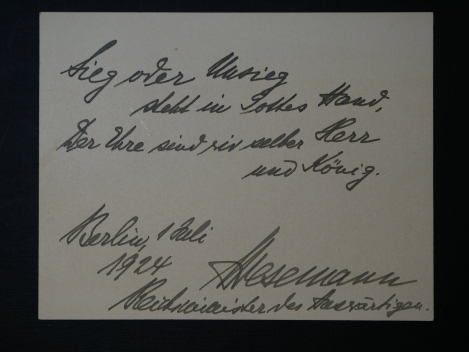 Sieg oder Unsieg
steht in Gottes Hand,
Der Ehre sind wir selber Herr
und König.
Berlin, 1 Juli
1924
Stresemann
Reichsminister des Auswärtigen.